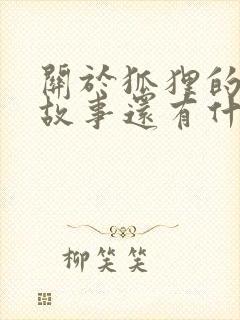 關於狐狸的
故事還有什
柳笑笑